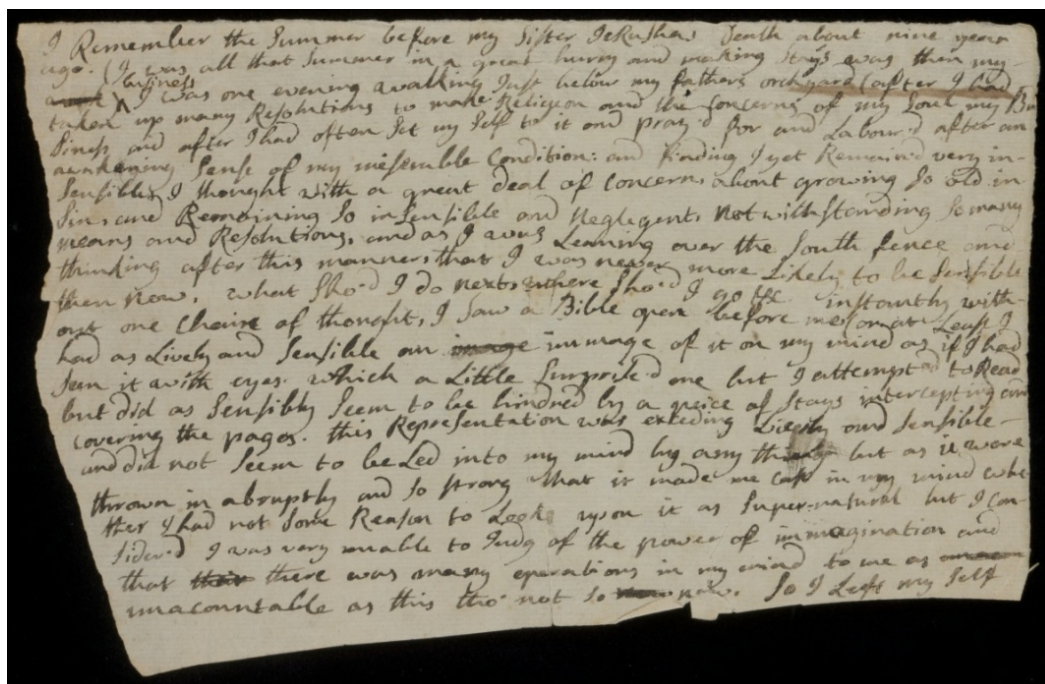 I Remember the Summer before my Sister Jerushas Death about nine year
ago. (I was all that Summer in a great hurry and making Stays was then my
business
I was one evening walking Just below my fathers orchyard (after I had
taken up many Resolutions to make Religion and the Concerns of my Soul my Bu
siness and after I had often Set my Self to it and pray'd for and Labour'd after an
awakening Sense of my miserable Condition: and finding I yet Remain'd very in-
sensible, I thought with a great deal of Concern, about growing So old in
Sin, and Remaining So insensible and Negligent, Notwithstanding So many
means and Resolutions, and as I was Leaning over the South fence and
thinking after this manner, that I was never more Likely to be Sensible
then now, what Sho'd I do next, where Sho'd I go &c. instantly with-
out one Chaine of thought, I Saw a Bible open before me or at Least I
had as Lively and Sensible an image immage of it on my mind as if I had
Seen it with eyes. which a Little Surprise'd me but I attempted to Read
but did as Sensibly Seem to be hindred by a peice of Stays intercepting and
covering the pages. this Representation was exceding Lively and Sensible
and did not Seem to be Led into my mind by any but as it were
thrown in abruptly and So Strong that it made me cast in my mind whe
ther I had not Some Reason to Look upon it as Supernatural but I Con
sider'd I was very unable to Judg of the power of immagination and
that their there was many operations in my mind to me as
unacountable as this tho' not So now. So I Left my Self